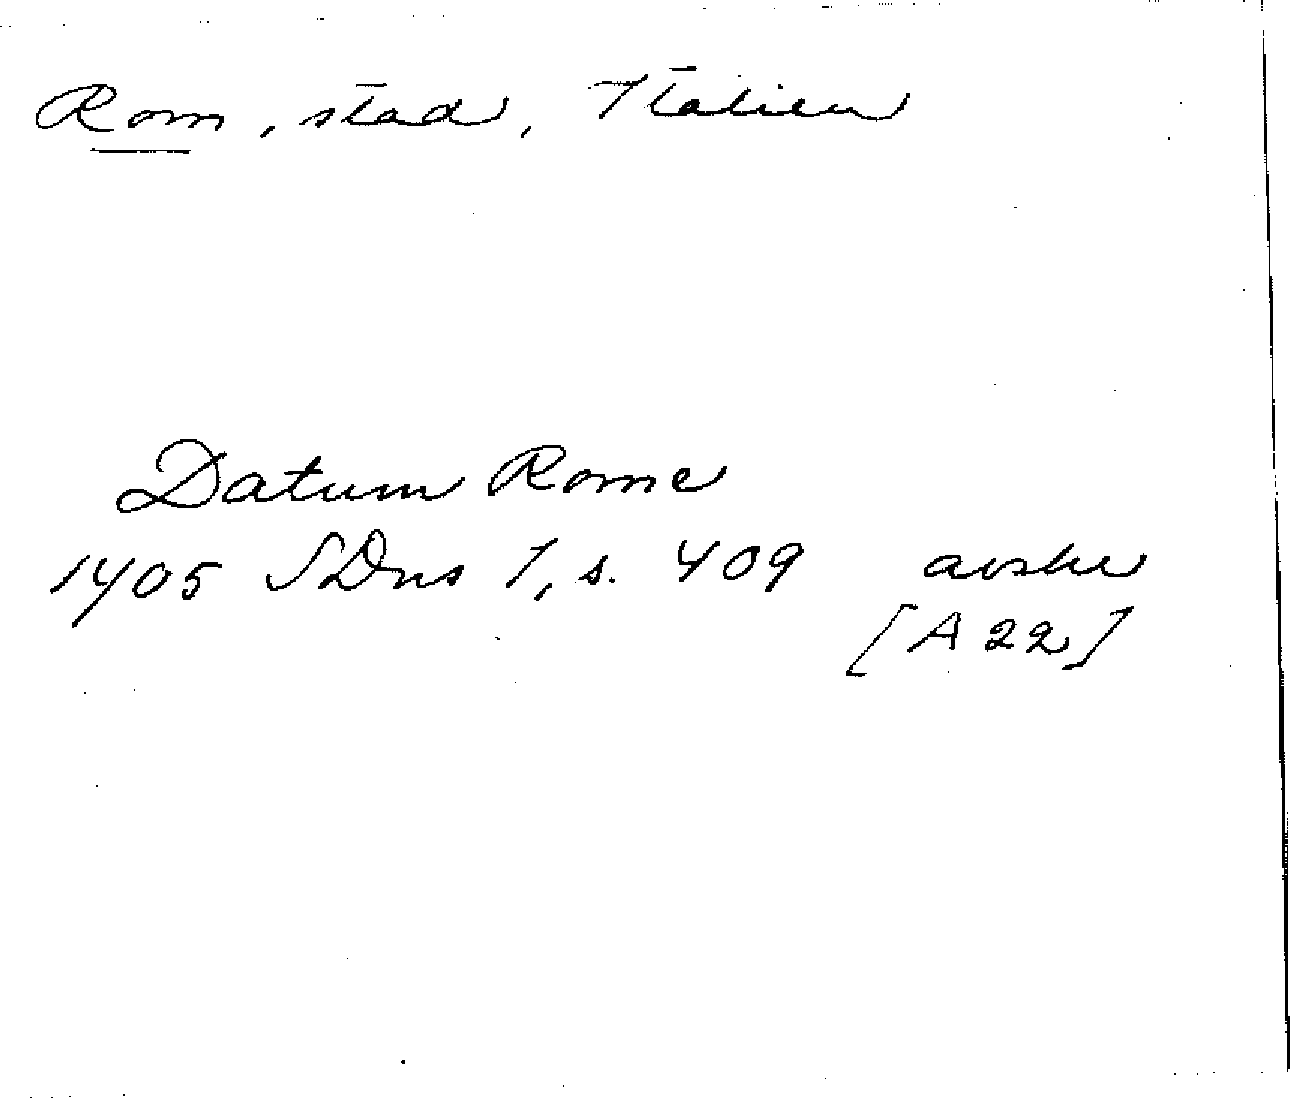 Rom, stad, Italien
Datum Rome
1405 SDns 1, s. 409 avskr
[A 22]